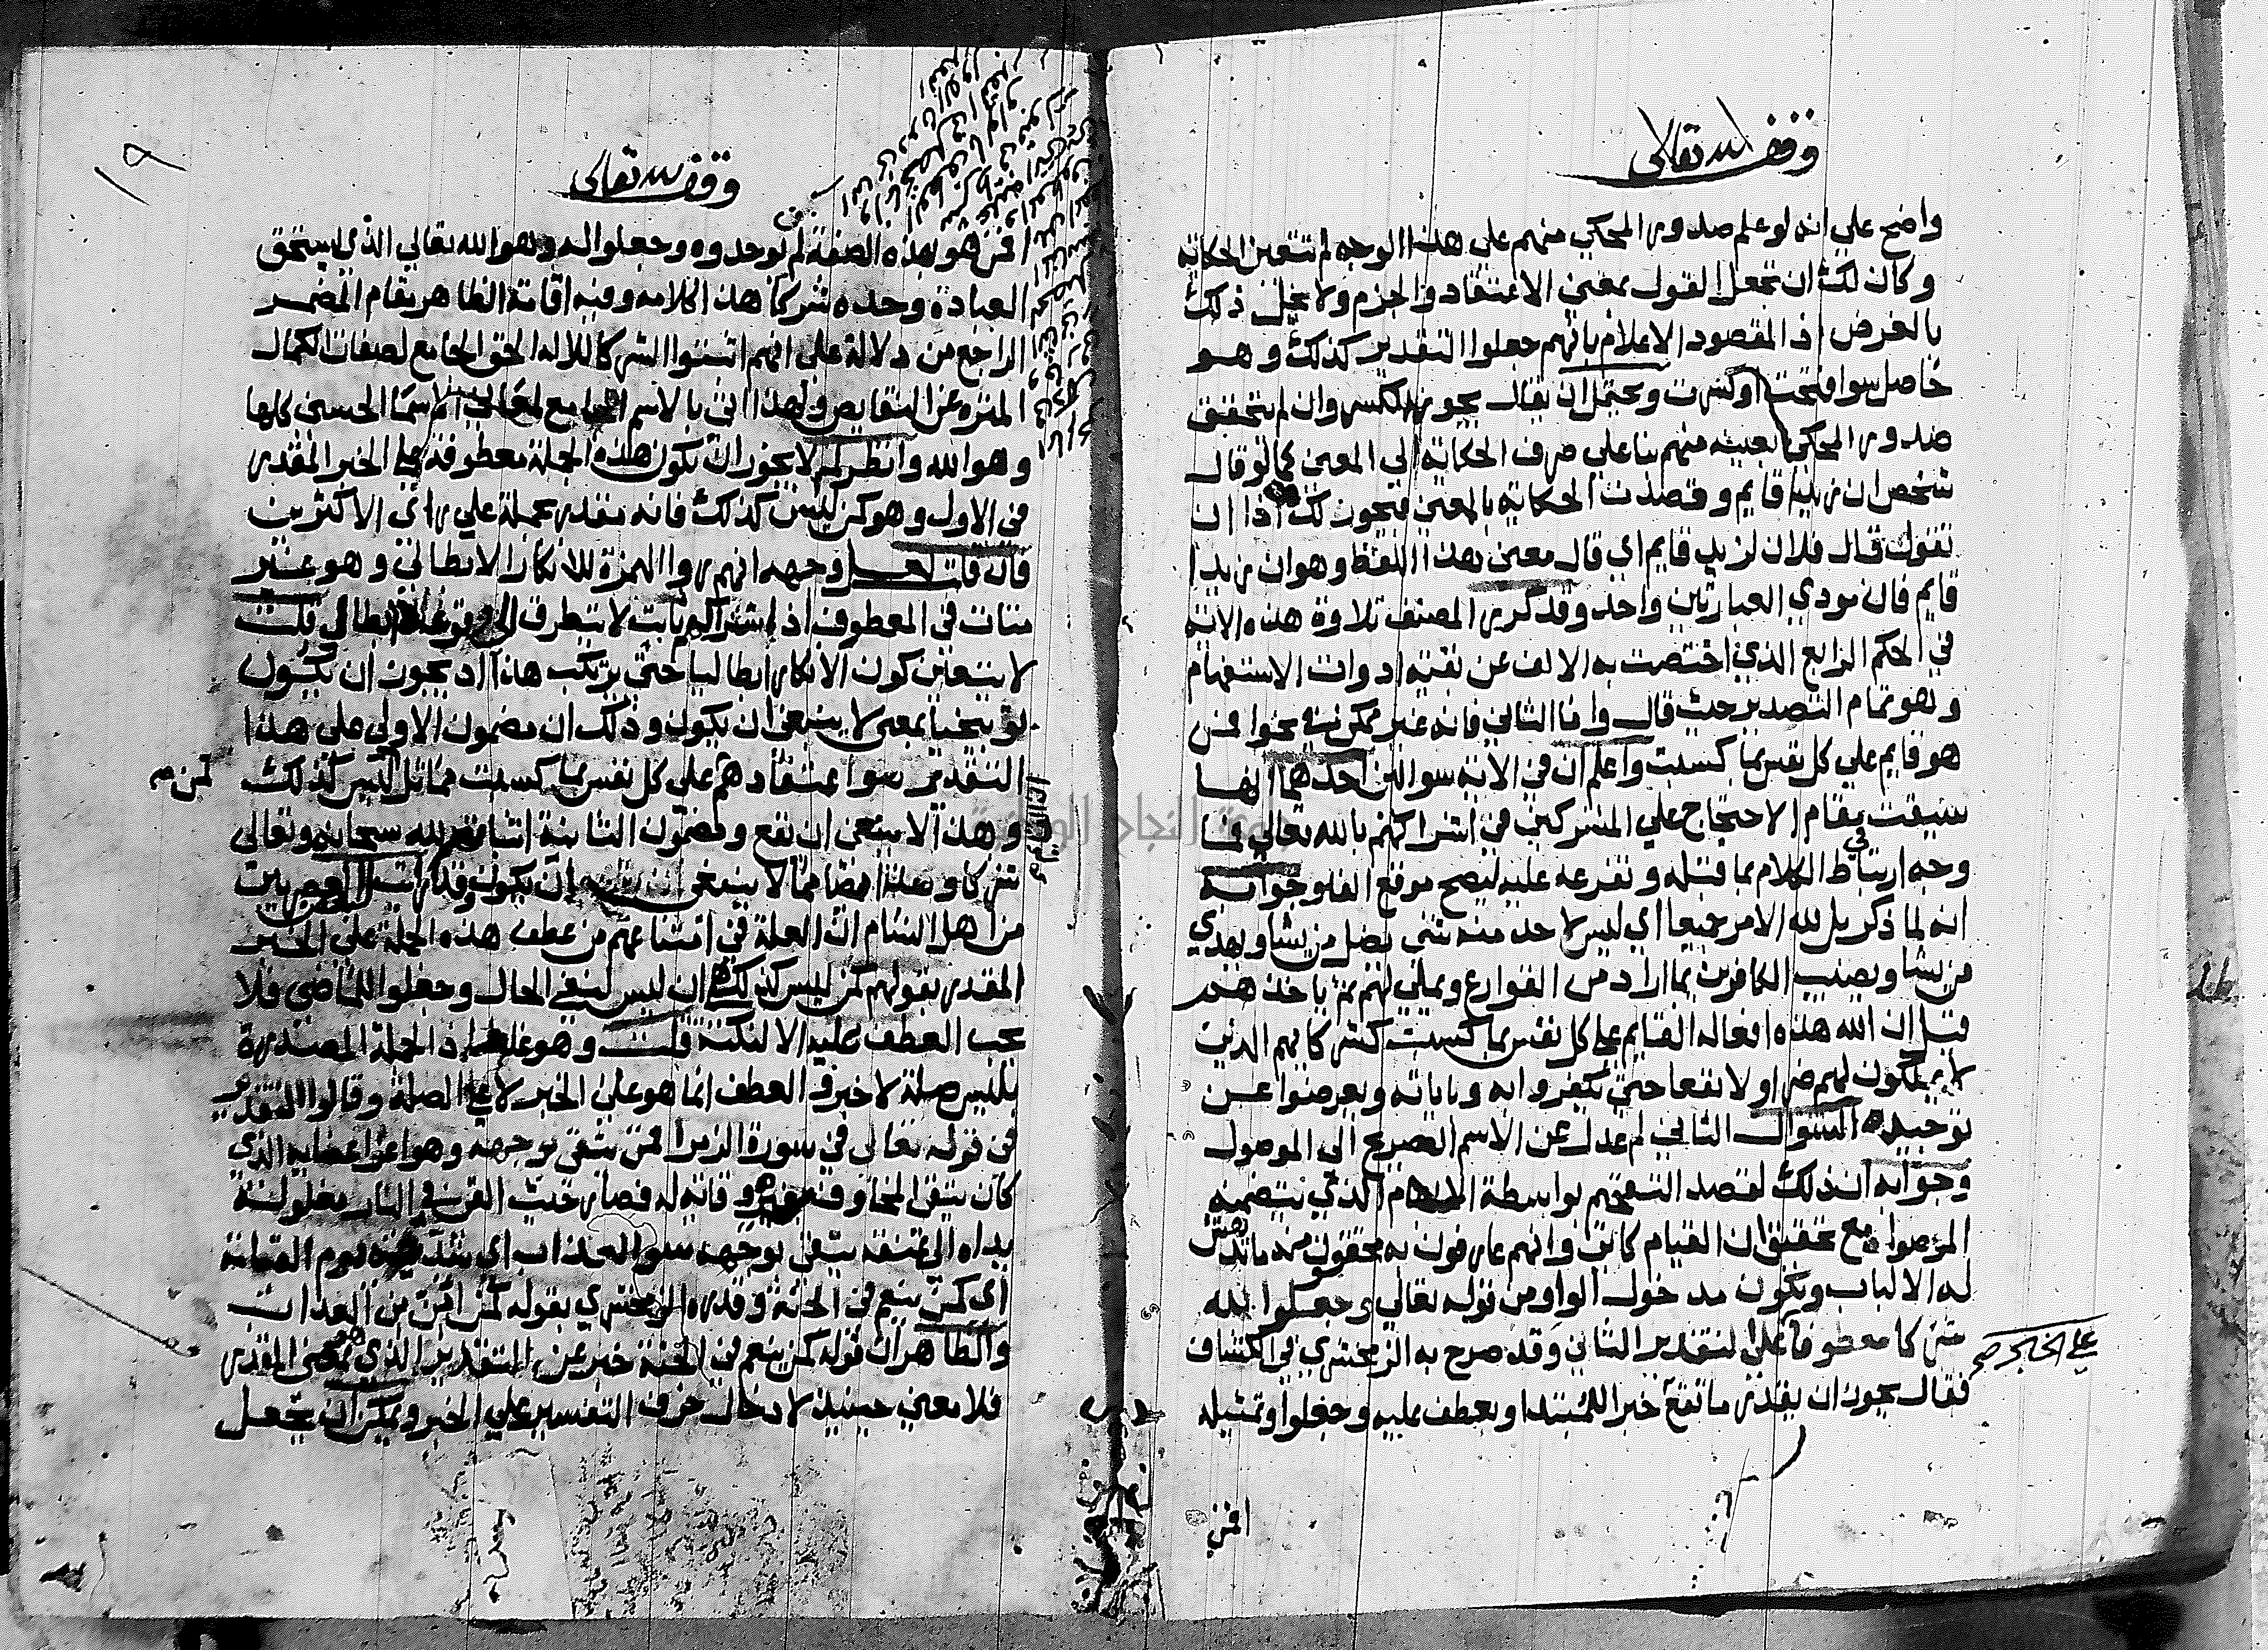 وقف لله تعالى
واضح علي انه لو علم صدور المحكي منهم على هذا الوجه لم تتعين الحكاية
وكان لك ان تجعل القول بمعني الاعتقاد والجزم ولا يخل ذلك
بالغرض اذ المقصود الاعلام بانهم جعلوا التقدير كذلك وهو
حاصل سوا فتحت او كسرت ويحتمل ان يقال يجوز الكسر وان لم يتحقق
صدور المحكي بعينه منهم بنا علي صرف الحكاية الي المعني كما لو قال
شخص ان زيدا قايم وقصدت الحكاية بالمعني فيجوز لك اذا ان
تقول قال فلان لزيد قايم اي قال معني هذا اللفظ وهو ان زيدا
قايم فان مودي العبارتين واحد وقد كرر المصنف تلاوة هذه الاية
في الحكم الرابع الذي اختصت به الالف عن بقية ادوات الاستفهام
وهو تمام التصدير حيث قال واما الثاني فانه غير ممكن في نحو افمن
هو قايم علي كل نفس بما كسبت واعلم ان في الاية سوالين احدهما انها
سيقت في مقام الاحتجاج علي المشركين في اشراكهم بالله تعالي فما
وجه ارتباط الكلام بما قبله وتفرعه عليه ليصح موقع الفا وجوابه
انه لما ذكر بل لله الامر جميعا اي ليس لاحد منه شي يضل من يشا ويهدي
من يشا ويصيب الكافرين بما اراد من القوارع ويملي لهم ثم ياخذهم
قيل ان الله هذه افعاله القايم علي كل نفس بما كسبت كشركايهم الذين
لا يملكون لهم ضرا ولا نفعا حتي تكفروا به وباياته ويعرضوا عن
توحيده السوال الثاني لم عدل عن الاسم الصريح الى الموصول
وجوابه ان ذلك لقصد التفخيم بواسطة الابهام الذي يتضمنه
الموصول مع تحقيق ان القيام كاين وانهم عارفون به محققون منه ما تدهش
له الالباب وتكون مدخول الواو من قوله تعالي وجعلوا لله
شركا معطوفا علي لتقدير الثاني وقد صرح به الزمخشري في الكشاف
علي الخبر صح
فقال يجوز ان يقدر ما تقع خبرا للمبتدا ويعطف عليه وجعلوا وتمثيله
افمن
وقف لله تعالى
افمن هو بهذه الصفة لم يوحدوه وجعلوا له وهو الله تعالي الذي يستحق
العبادة وحده شركا هذا كلامه وفيه اقامة الظاهر مقام المضمر
الراجع من دلالة على انهم اثبتوا الشركا للاله الحق الجامع لصفات الكمال
المنزه عن النقايص ولهذا اتى بالاسم الجامع لمعاني الاسما الحسنى كلها
وهو الله وانظر لم لا يجوز ان تكون هذه الجملة معطوفة علي الخبر المقدر
في الاول وهو كمن ليس كذلك فانه مقدر بجملة علي راي الاكثرين
فان قلت لعل وجهه انهم راوا الهمزة للانكار الابطالي وهو غير
متات في المعطوف اذ اشراكهم ثابت لا يتطرق الى وقوعه ابطال قلت
لا يتعين كون الانكار ابطاليا حتي يرتكب هذا اذ يجوز ان يكون
توبيخيا بمعني لا ينبغي ان يكون وذلك ان مضمون الاولى على هذا
التقدير سوا اعتقادهم علي كل نفس بما كسبت مماثل لليس كذلك
كمن صح
وهذا لا ينبغي ان يقع ومضمون الثانية اثباتهم لله سبحانه وتعالى
شركا وهذا ايضا مما لا ينبغي ان يكون وقد رايت لبعض العصريين
من اهل الشام ان العلة في امتناعهم من عطف هذه الجملة علي الخبر
المقدر بقولهم كمن ليس كذلك ان ليس لنفي الحال وجعلوا للماضي فلا
يجب العطف عليه الا لنكتة قلت وهو غلط اذ الجملة المصدرة
بليس صلة لا خبر والعطف انما هو علي الخبر لا علي الصلة وقالوا التقدير
في قوله تعالى في سورة الزمر افمن يتقي بوجهه وهو اعز اعضايه الذي
كان يتقي المخاوف بغيره وقاية له فصار حيث القي في النار مغلولة
يداه الي عنقه يتقي بوجهه سوا العذاب اي شديده يوم القيامة
اي كمن ينعم في الجنة وقدره الزمخشري بقوله كمن امن من العذاب
والظاهر ان قوله كمن ينعم في الجنة خبر عن التقدير الذي بمعني المقدر
فلا معني حينيذ لادخال حرف التفسير علي الخبر ويمكن ان يجعل